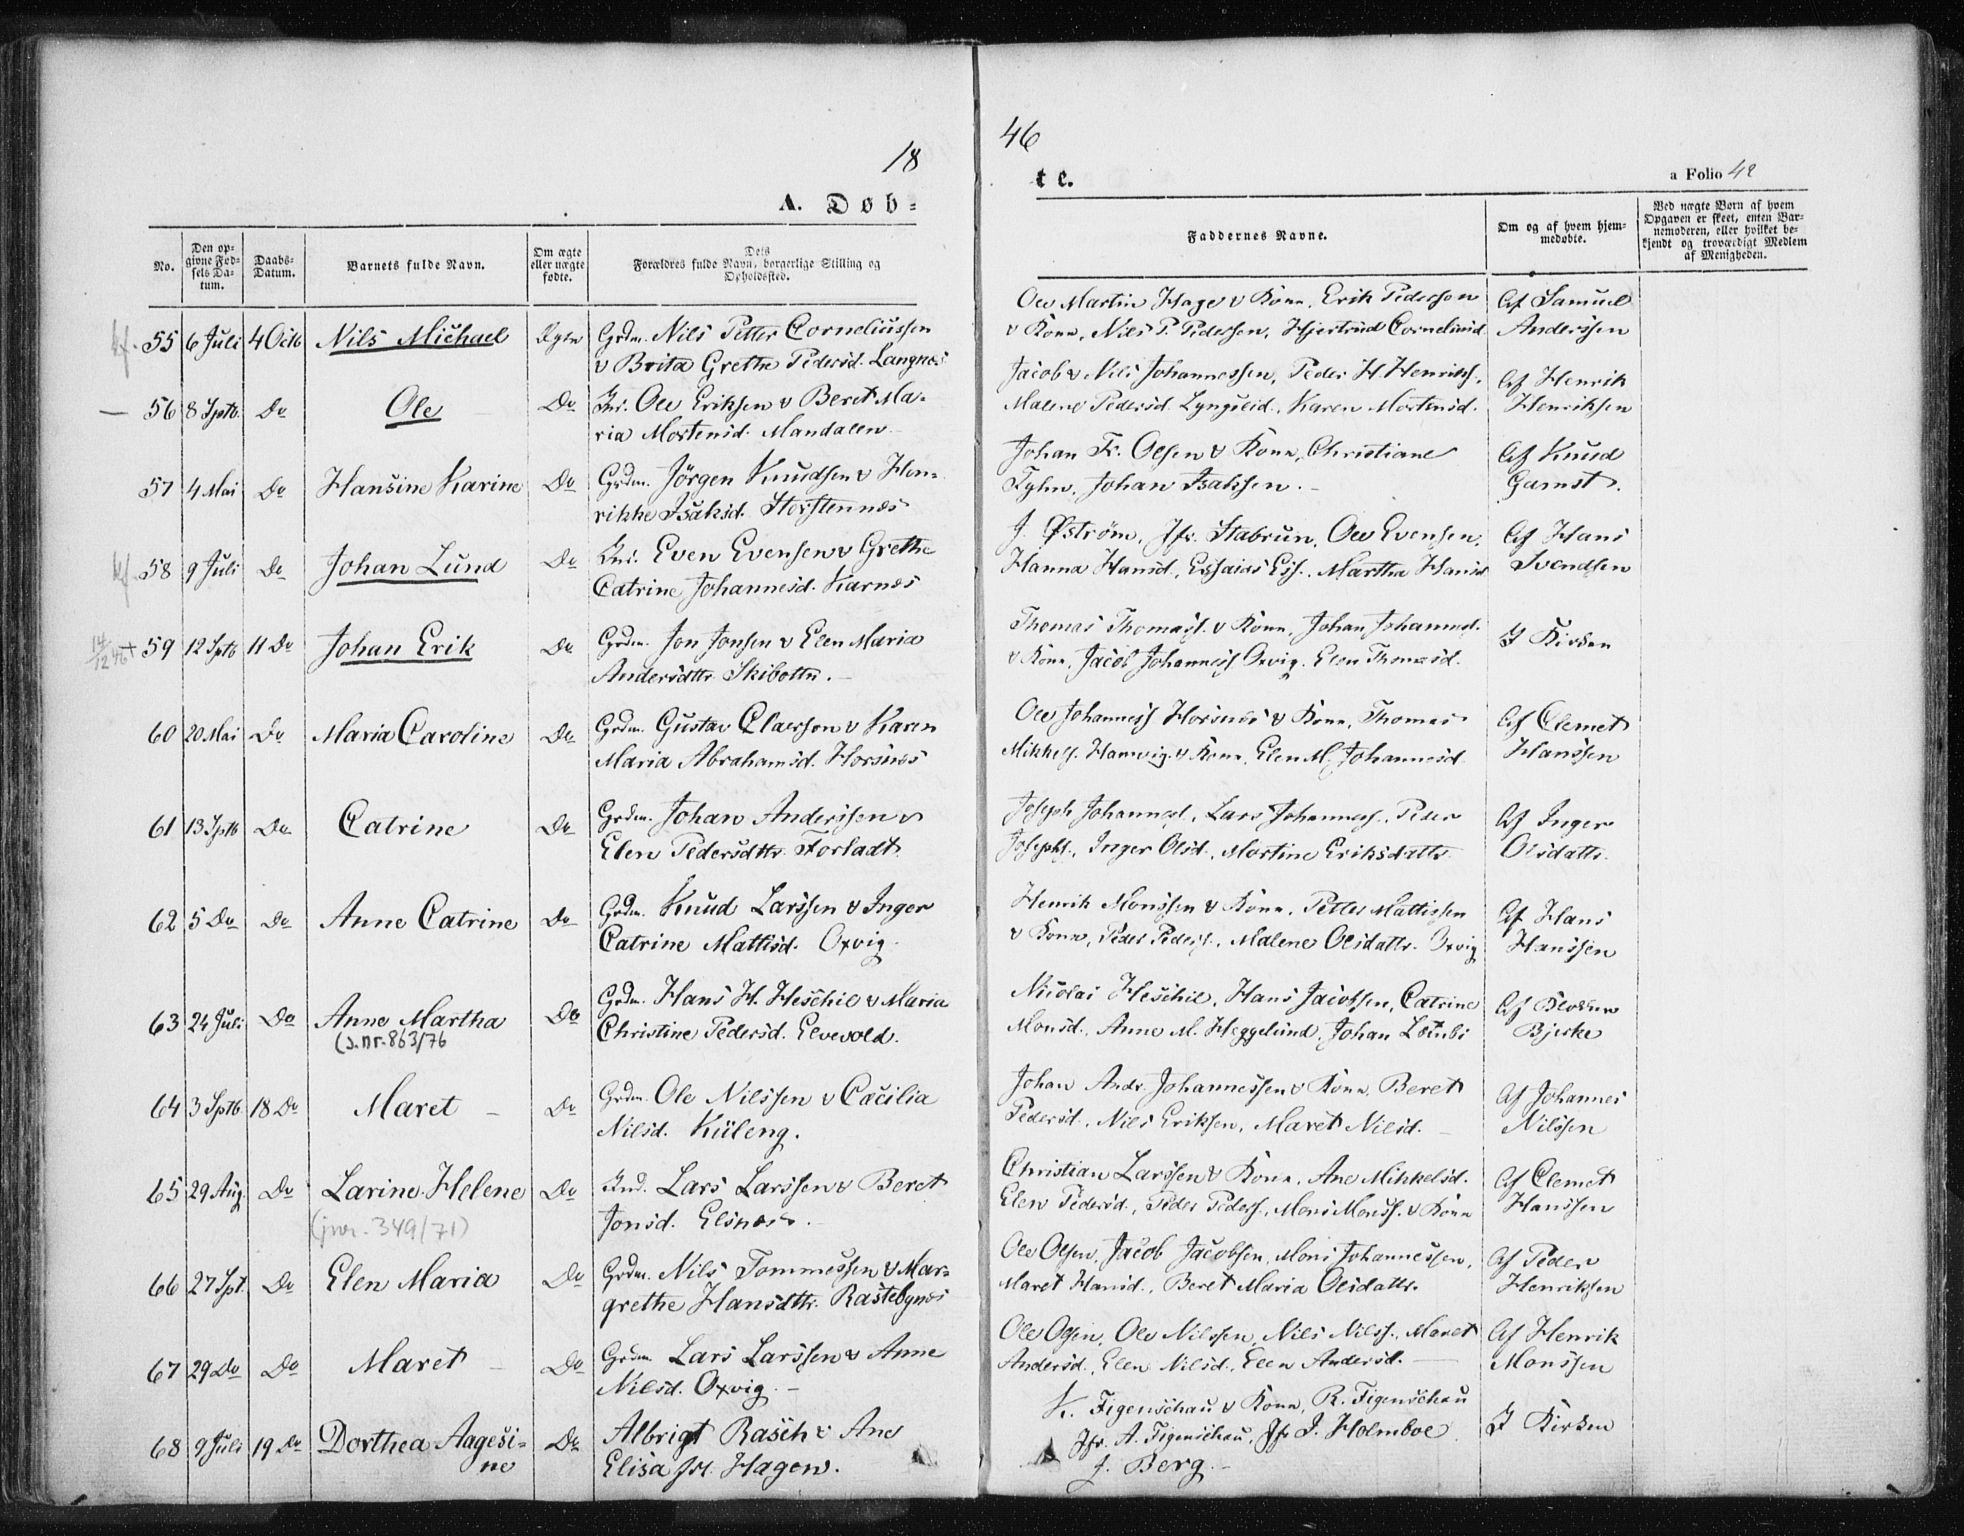 18
46
A. Døb=
te.
a Folio 42
No.
Den op=
givne Fød=
sels Da=
tum.
Daabs=
Datum.
Barnets fulde Navn.
Om ægte
eller uægte
fødte.
Dets
Forældres fulde Navn, borgerlige Stilling og
Opholdssted.
Faddernes Navne.
Om og af hvem hjem=
medøbte.
Ved uægte Børn af hvem
Opgaven er skeet, enten Bar=
nemoderen, eller hvilket be=
kjendt og troværdigt Medlem
af Menigheden.
55 6 Juli 4 Octb Nils Michael Ægte Grdm. Nils Petter Corneliussen
& Brita Grethe Pedersd. Langnæs
Ole Martin Hage & Kone, Erik Pedersen
& Kone, Nils P. Pedersen, Hjertrud Corneliusd
Af Samuel
Anderssen
56 8 Sptb Do Ole Do Inr. Ole Eriksen & Beret Ma=
ria Mortensd. Mandalen
Jacob & Nils Johannessen, Peder H. Henriks.,
Malene Pedersd. Lyngseid, Karen Mortensd.
Af Henrik
Henriksen
57 4 Mai Do Hansine Karine Do Grdm. Jörgen Knudsen & Hen=
rikke Isaksd. Storstennæs
Johan Fr. Olsen & Kone, Christiane
Fyhn, Johan Isaksen.
Af Knud
Garnst.
58 9 Juli Do Johan Lund Do Inr. Even Evensen & Grethe
Catrine Johannesd. Karnæs
J. Østrøm, Jfr. Stabrun, Ole Evensen,
Hanna Hansd., Esaias Es., Martha Hansd
Af Hans
Svendsen
14/12 46 +
59 12 Sptb 11 Do Johan Erik Do Grdm. Jon Jonsen & Elen Maria
Andersdttr. Skibotten.
Thomas Thomass. & Kone, Johan Johannes.
& Kone, Jacob Johanness. Oxvig, Elen Thomasd.
I Kirken
60 20 Mai Do Maria Caroline Do Grdm. Gustav Claessen & Karen
Maria Abrahamsd. Horsnæs
Ole Johanness. Horsnæs & Kone, Thomas
Mikkels. Hamvig & Kone, Elen M. Johannesd.
Af Clemet
Hanssen
61 13 Sptb Do Catrine Do Grdm. Johan Anderssen &
Elen Pedersdttr. Forladt
Joseph Johannes., Lars Johanness., Peder
Josephs., Inger Olsd., Martine Eriksdattr.
Af Inger
Olsdattr.
62 5 Do Do Anne Catrine Do Grdm. Knud Larssen & Inger
Catrine Mattisd. Oxvig.
Henrik Monssen & Kone, Petter Mattissen
& Kone, Peder Peders., Malene Olsdattr. Oxvig
Af Hans
Hanssen
63 24 Juli Do Anne Martha Do Grdm. Hans H. Heschie & Maria
(J.nr. 863/76
Christine Pedersd. Elvevold.
Nicolai Heschie, Hans Jacobsen, Catrine
Monsd., Anne M. Heggelund, Johan
Af Klokker
Bjerke
64 3 Sptb 18 Do Maret Do Grdm. Ole Nilssen & Cæcilia
Nilsd. Küleng.
Johan Andr. Johannessen & Kone, Beret
Pedersd., Nils Eriksen, Maret Nilsd.
Af Johannes
Nilssen
65 29 Aug. Do Larine Helene Do Lars Larssen & Beret
(jnr. 349/71)
Jonsd. Elsnæs.
Christian Larssen & Kone, Ane Mikkelsd.
Elen Pedersd., Peder Peders., Mons Monss. & Kone
Af Clemet
Hanssen
66 27 Spt. Do Elen Maria Do Grdm. Nils Tommessen & Mar=
grethe Hansdttr. Rastebynæs
Ole Olsen, Jacob Jacobsen, Mons Johannessen,
Maret Hansd., Beret Maria Olsdattr.
Af Peder
Henriksen
67 29 Do Do Maret Do Grdm. Lars Larssen & Anne
Nilsd. Oxvig.
Ole Olsen, Ole Nilssen, Nils Nilss., Maret
Andersd., Elen Nilsd., Elen Andersd.
Af Henrik
Monssen
68 9 Juli 19 Do Dorthea Aagesi=
ne
Do Albrigt Rasch & Ane
Elisa f. Hagen.
K. Figenschau & Kone, R. Figenschau
Jfr. A. Figenschau, Jfr J. Holmboe
J. Berg.
I Kirken